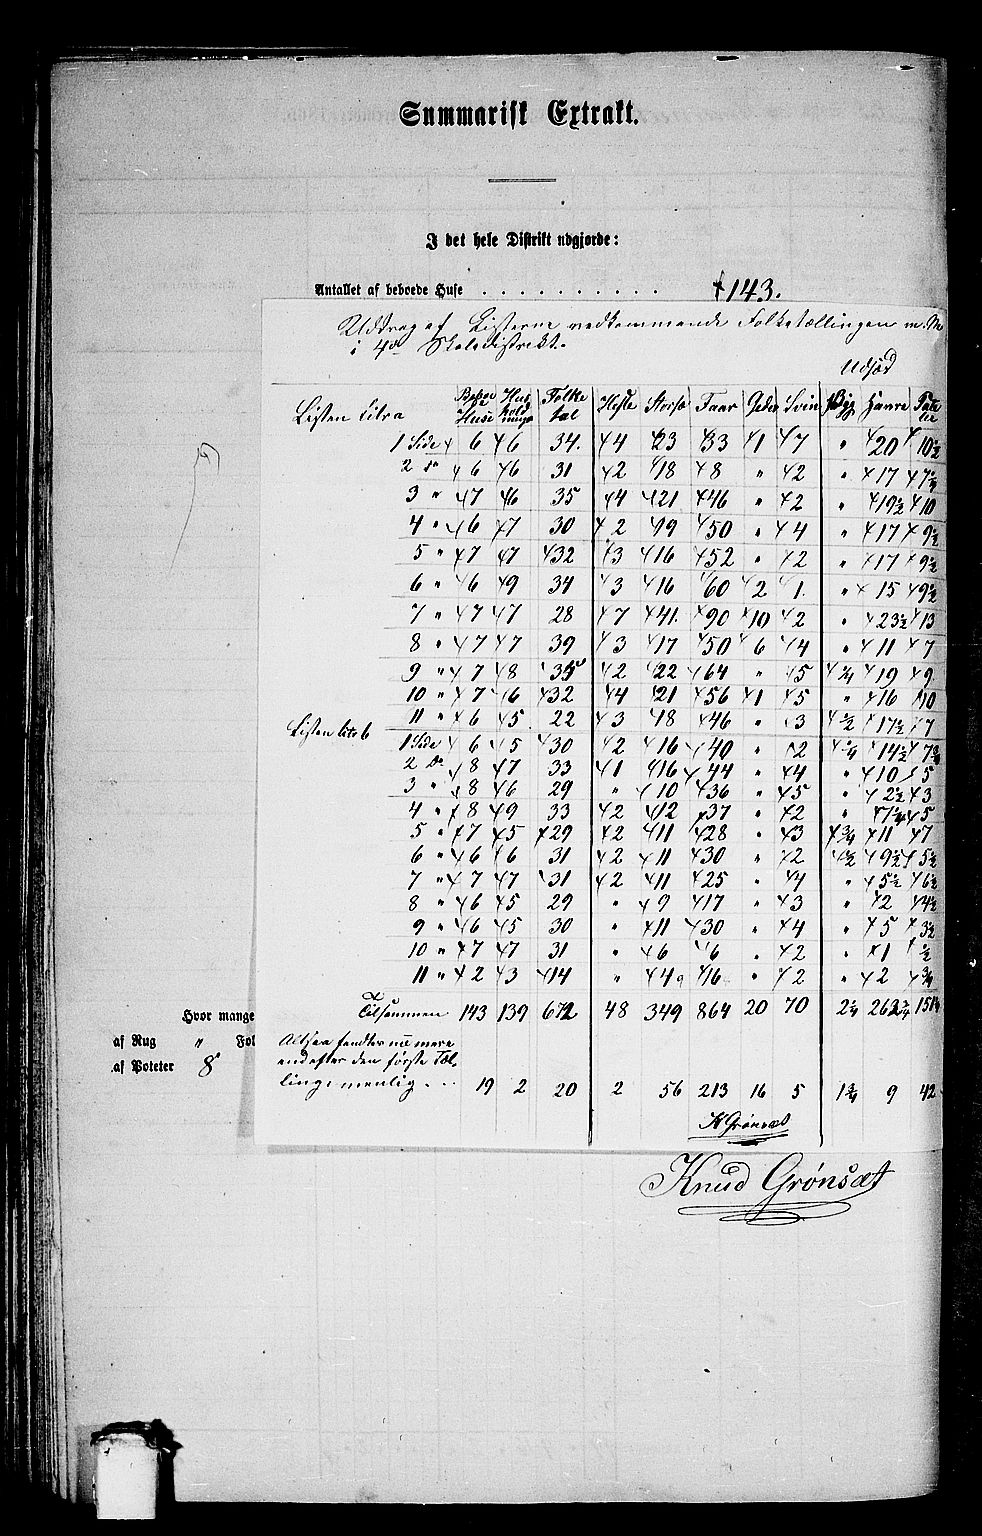 Summarisk Extrakt.
I det hele Distrikt udgjorde:
Antallet af beboede Huse . . . . . . . . . . 143.
Uddrag af Listerne vedkommende Folketællingen m. M
i 4de Skoledistrikt.
Udsæd
Listen Litra Beboede Huse Husholdninger Folketal Heste Storfæ Faar Geder Svin Byg Havre Poteter
1 Side 6 6 34. 4 23 33 1 7 " 20 10½
2 do 6 6 31 2 18 8 " 2 " 17 7¼
3 " 7 6 35 4 21 46 " 2 " 19½ 10
4 " 6 7 30 2 19 50 " 4 " 17 9½
5 " 7 7 32 3 16 52 " 2 " 17 9½
6 " 6 9 34 3 16 60 2 1. " 15 9½
7 " 7 7 28 7 41. 90 10 2 " 23½ 13
8 " 7 7 39 3 17 50 6 4 " 11 7
9 " 7 8 35 2 22 64 " 5 ¼ 19 9
10 " 7 6 32 4 21 56 1 5 " 16 10
11 " 6 5 22 3 18 46 " 3 ½ 17½ 7
Listen litr b
1 Side 6 5 30 2 16 40 " 2 ¼ 14½ 7¾
2 do 8 7 33 1 16 44 " 4 " 10 5
3 " 8 6 29 " 10 36 " 5 " 2½ 3
4 " 8 9 33 2 12 37 " 2 " 7¼ 5
5 " 7 5 29 2 11 28 " 3 ¾ 11 7
6 " 6 6 31 2 11 30 " 2 ½ 9½ 5½
7 " 7 7 31 2 11 25 " 4 " 5½ 6½
8 " 6 5 29 " 9 17 " 3 " 2 4½
9 " 6 5 30 " 11 30 " 4 " 5 3½
10 " 7 7 31 " 6 6 " 2 " 1 ½
11 " 2 3 14 " 4 16 " 2 " 2 ¾
Tilsammen 143 139 672 48 349 864 20 70 2¼ 262¾ 151¼
Hvor mange
af Rug " Fol
af Poteter 8
Altsaa fandtes nu mere
end efter den første Tæl-
ling nemlig . . . 19 2 20 2 56 213 16 5 1¾ 9 42
K Grønsæt
Knud Grønsæt